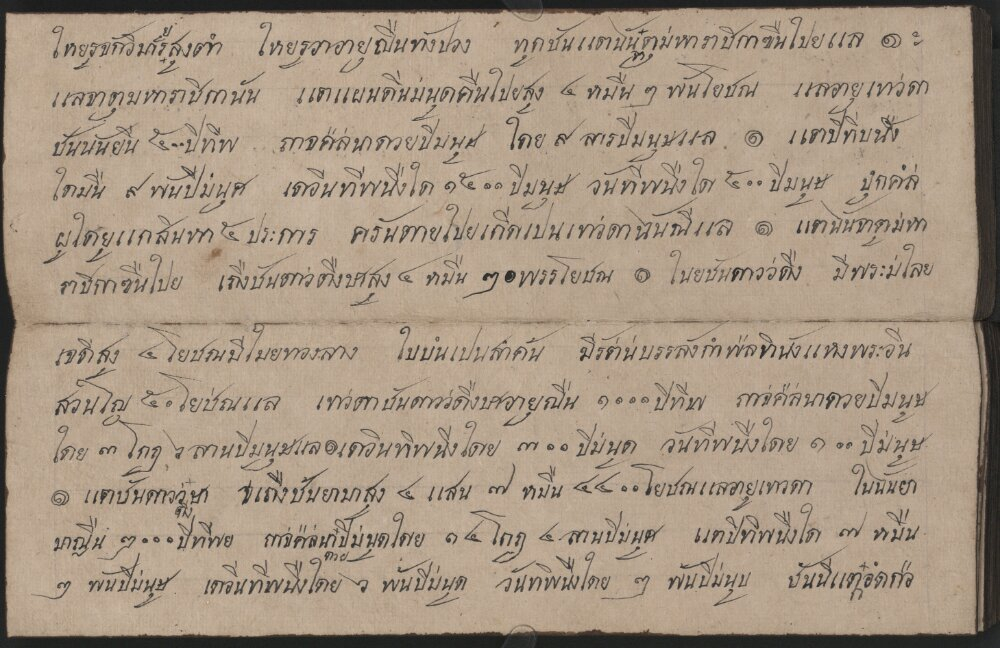 ใหยรูจกวิมรรู้สูงตำ ใหยรูวาอายุญืนทังปวง ทุกชันแตนันจาตุม่หาราชิกาขืนไปยแล ๑ะ
แลจาตุมหาราชิกานัน แตแผนดืนม่นุดคืนไปยสูง ๔ หมืน ๖ พันโยชณ แลอายุเทว่ดา
ชันนันยืน ๕๐๐ ปีทีพ กาจคีล่นาดวยปีมนุษ โดย ๙ ลารปีมนุษแล ๑ แตปีทีบนืง
ไดมืน ๙ พันปีม่นุศ เดวีนทีพนืงใด ๑๕๐๐ ปีมนุษ วันทีพนืงใด ๕๐๐ ปีมนุษ
ผูใดยูแกสีนหา ๕ ประการ ครันตายไปยเกีดเปนเทว่ดานันณีแล ๑ แตนันจาตุม่หา
ราชิกาขืนไปย เถืงชันดาว่ดืงษาสูง ๔ หมืน ๖๐ พรรโยชณ ๑ ในยชันดาวว่ดืง มีพระม่ไลย
เจดีสูง ๔ โยชณมีไมยทองลาง ใบบํนเปนสำคัน มีรัต่น่บรรลังกำพ่ลทีนังแหงพระอีน
สวนโญ ๕๐ โยช่ณแล เทว่ดาชันดาวว่ดืงษาอายุญืน ๑๐๐๐ ปีทีพ กาจ่คีล่นาดวยปีมนุษ
โดย ๓ โกฏ ๖ ลานปีมนุษแล ๑ เดวีนทิพนืงใดย ๓๐๐ ปีม่นุด วันทีพนืงใดย ๑๐๐ ปีม่นุษ
๑ แตชันดาวว่ดืงษา จเถืงชันยามาสูง ๔ แสน ๗ หมืน ๔๔๐๐ โยชณแลอายุเทวดา ในนันยา
มาญืน ๖๐๐๐ ปีทีพย กาจ่คีล่นาดวยปีม่นุดโดย ๑๔ โกฏ ๔ ลานปีม่นุศ แตปีทีพนืงใด ๗ หมืน
๖ พันปีม่นุษ เดวีนทีพนืงใดย ๖ พันปีม่นุด วันทีพนืงใดย ๖ พันปีม่นุษ ชันนีแต